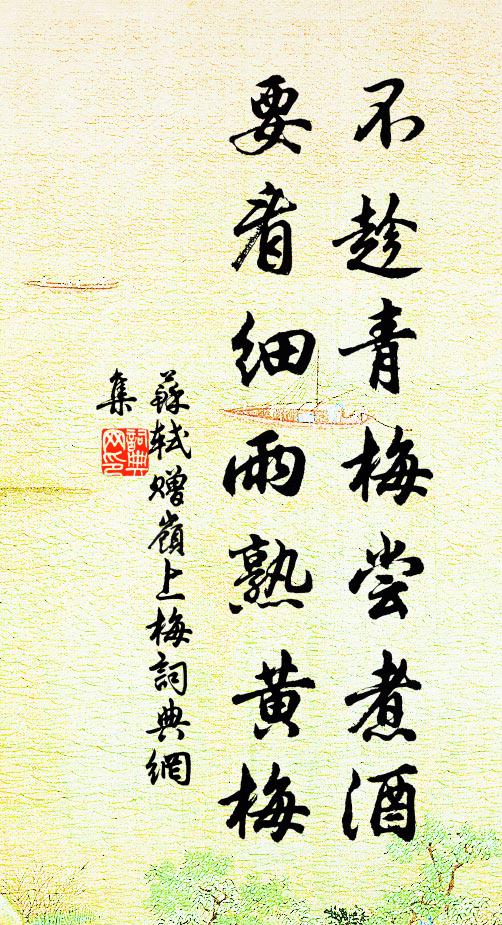 不趁青梅尝煮酒
要看细雨熟黄梅
蘇軾贈嶺上梅詞典網
集
詞典网印